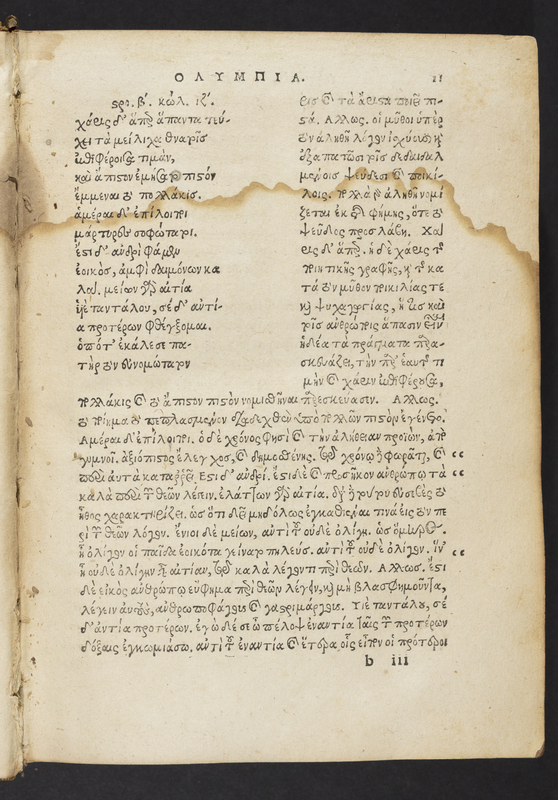 ΟΛΥΜΠΙΑ. 11
στρο. β'. κώλ. ιζ'.
χάρις δ' ἅπερ ἅπαντα τεύ-
χει τὰ μείλιχα θνατοῖς
ἐπιφέροισα τιμὰν,
καὶ ἄπιστον ἐμήσατο πιστὸν
ἔμμεναι τὸ πολλάκις.
ἁμέραι δ' ἐπίλοιποι
μάρτυρες σοφώτατοι.
ἔστι δ' ἀνδρὶ φάμεν
ἐοικὸς, ἀμφὶ δαιμόνων κα
λά. μείων γὰρ αἰτία
υἱὲ ταντάλου, σὲ δ' ἀντί-
α προτέρων φθέγξομαι.
ὁπότ' ἐκάλεσε πα-
τὴρ τὸν εὐνομώταον
ρις καὶ τὰ ἄπιστα ποιεῖ πι-
στά. Ἄλλως. οἱ μῦθοι ὑπὲρ
τὸν ἀληθῆ λόγον ἰσχύουσι, καὶ
ἐξαπατῶσι τοῖς δεδαιδαλ
μένοις ψεύδεσι καὶ ποικί-
λοις. πολλὰ γὰρ ἀληθῆ νομί
ζεται ἐκ τῆς φήμης, ὅτε τὸ
ψεῦδος προσλάβῃ. Χά
ρις δ' ἅπερ. ἡ δὲ χάρις τῆς
ποιητικῆς γραφῆς, καὶ τῆς κα
τὰ τὸν μῦθον ποικιλίας τε
καὶ ψυχαγωγίας, ἥτις καὶ
τοῖς ἀνθρώποις ἅπασιν εἶναι
ἡδέα τὰ πράγματα παρα-
σκευάζει, τὴν παρ' ἑαυτῆς τι
μὴν καὶ χάριν ἐπιφέρουσα,
πολλάκις καὶ τὸ ἄπιστον πιστὸν νομισθῆναι παρεσκεύασεν. Ἄλλως.
τὸ ποίημα τὸ πεπλασμένον παραδεχθὲν ὑπὸ πολλῶν πιστὸν ἐγένετο.
Ἁμέραι δ' ἐπίλοιποι. ὁ δὲ χρόνος φησὶ καὶ τὴν ἀλήθειαν προϊὼν, ἀπο
γυμνοῖ. ἀξιόπιστος ἔλεγχος, καὶ δημοσθένης. τῷ χρόνῳ φωρᾶται, καὶ
περὶ αὐτὰ καταρρεῖ. Ἔστι δ' ἀνδρί. ἔστι δὲ καὶ προσῆκον ἀνθρώπῳ τὰ
καλὰ περὶ τῶν θεῶν λέγειν. ἐλάττων γὰρ αἰτία. διὰ τούτου δυσσεβὲς τὸ
ἦθος χαρακτηρίζει. ὡς ὅτι δεῖ μηδόλως ἐγκαθεῖναι τινὰ εἰς τὸν πε
ρὶ τῶν θεῶν λόγον. ἔνιοι δὲ μείων, ἀντὶ τοῦ οὐδὲ ὀλίγη. ὡς ὅμηρος.
ἦ ὀλίγον οἱ παῖδα ἐοικότα γείνατο τυδεύς. ἀντὶ τοῦ οὐδὲ ὀλίγον. ἵν'
ᾖ οὐδὲ ὀλίγην ἔχει αἰτίαν, τῷ καλὰ λέγοντι περὶ θεῶν. Ἄλλως. ἔστι
δὲ εἰκὸς ἀνθρώπῳ εὔφημα περὶ θεῶν λέγειν, καὶ μὴ βλασφημοῦντα,
λέγειν αὐτοὺς, ἀνθρωποφάγους καὶ γαστριμάργους. Υἱὲ ταντάλου, σὲ
δ' ἀντία προτέρων. ἐγὼ δέ σε ὦ πέλοψ ἐναντία ταῖς τῶν προτέρων
δόξαις ἐγκωμιάσω. ἀντὶ τοῦ ἐναντία καὶ ἕτερα οἷς εἶπον οἱ πρότεροι
b iii